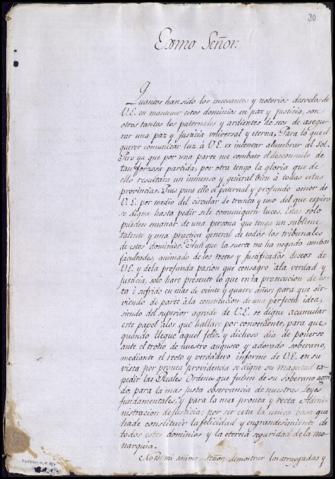 30
Exmo Señor.
Quantos han sido los incesantes y notorios desvelos de
V.E. en mantener estos dominios en paz y justicia, son
otros tantos los paternales y ardientes deseos de asegu-
rar una paz y Justicia universal y eterna. Para lo que
querer comunicar luz à V.E. es intentar alumbrar al Sol.
Pero ya que por una parte me combate el desconsuelo de
tan forzosa partida, por otra tengo la gloria que de
ella resultará un inmenso y general bien à todas estas
provincias. Pues para ello el paternal y profundo amor de
V.E. por medio del circular de treinta y uno del que espiró
se digna hasta pedir se le comuniquen luces. Estas solo
pueden emanar de una persona que tenga un sublime
talento y una practica general de todos los tribunales
de estos dominios. Aun que la suerte me ha negado ambas
facultades, animado de los rectos y justificados deseos de
V.E. y de la profunda pasion que consagro à la verdad y
Justicia, solo haré presente lo que en la prosecucion de
he sufrido en mas de veinte y quatro años; para que sir-
viendo de parte à la constitucion de una perfecta idea,
siendo del superior agrado de V.E. se digne acumular
este papel à los que hallare por conveniente, para que,
quando llegue aquel feliz y dichoso dia de postrarse
ante el trono de nuestro augusto y adorado soberano,
mediante el recto y verdadero informe de V.E. en su
vista por pronta providencia se digne su magestad ex-
pedir las Reales Ordenes que fueren de su soberano agra-
do para la mas justa observancia de nuestras leyes
fundamentales, y para la mas pronta y recta Admi-
nistracion de Justicia; por ser esta la unica base que
ha de constituir la felicidad y engrandecimiento de
todos estos dominios y la eterna seguridad de la mo-
narquia.
No es mi animo Señor, demostrar los arraygados y